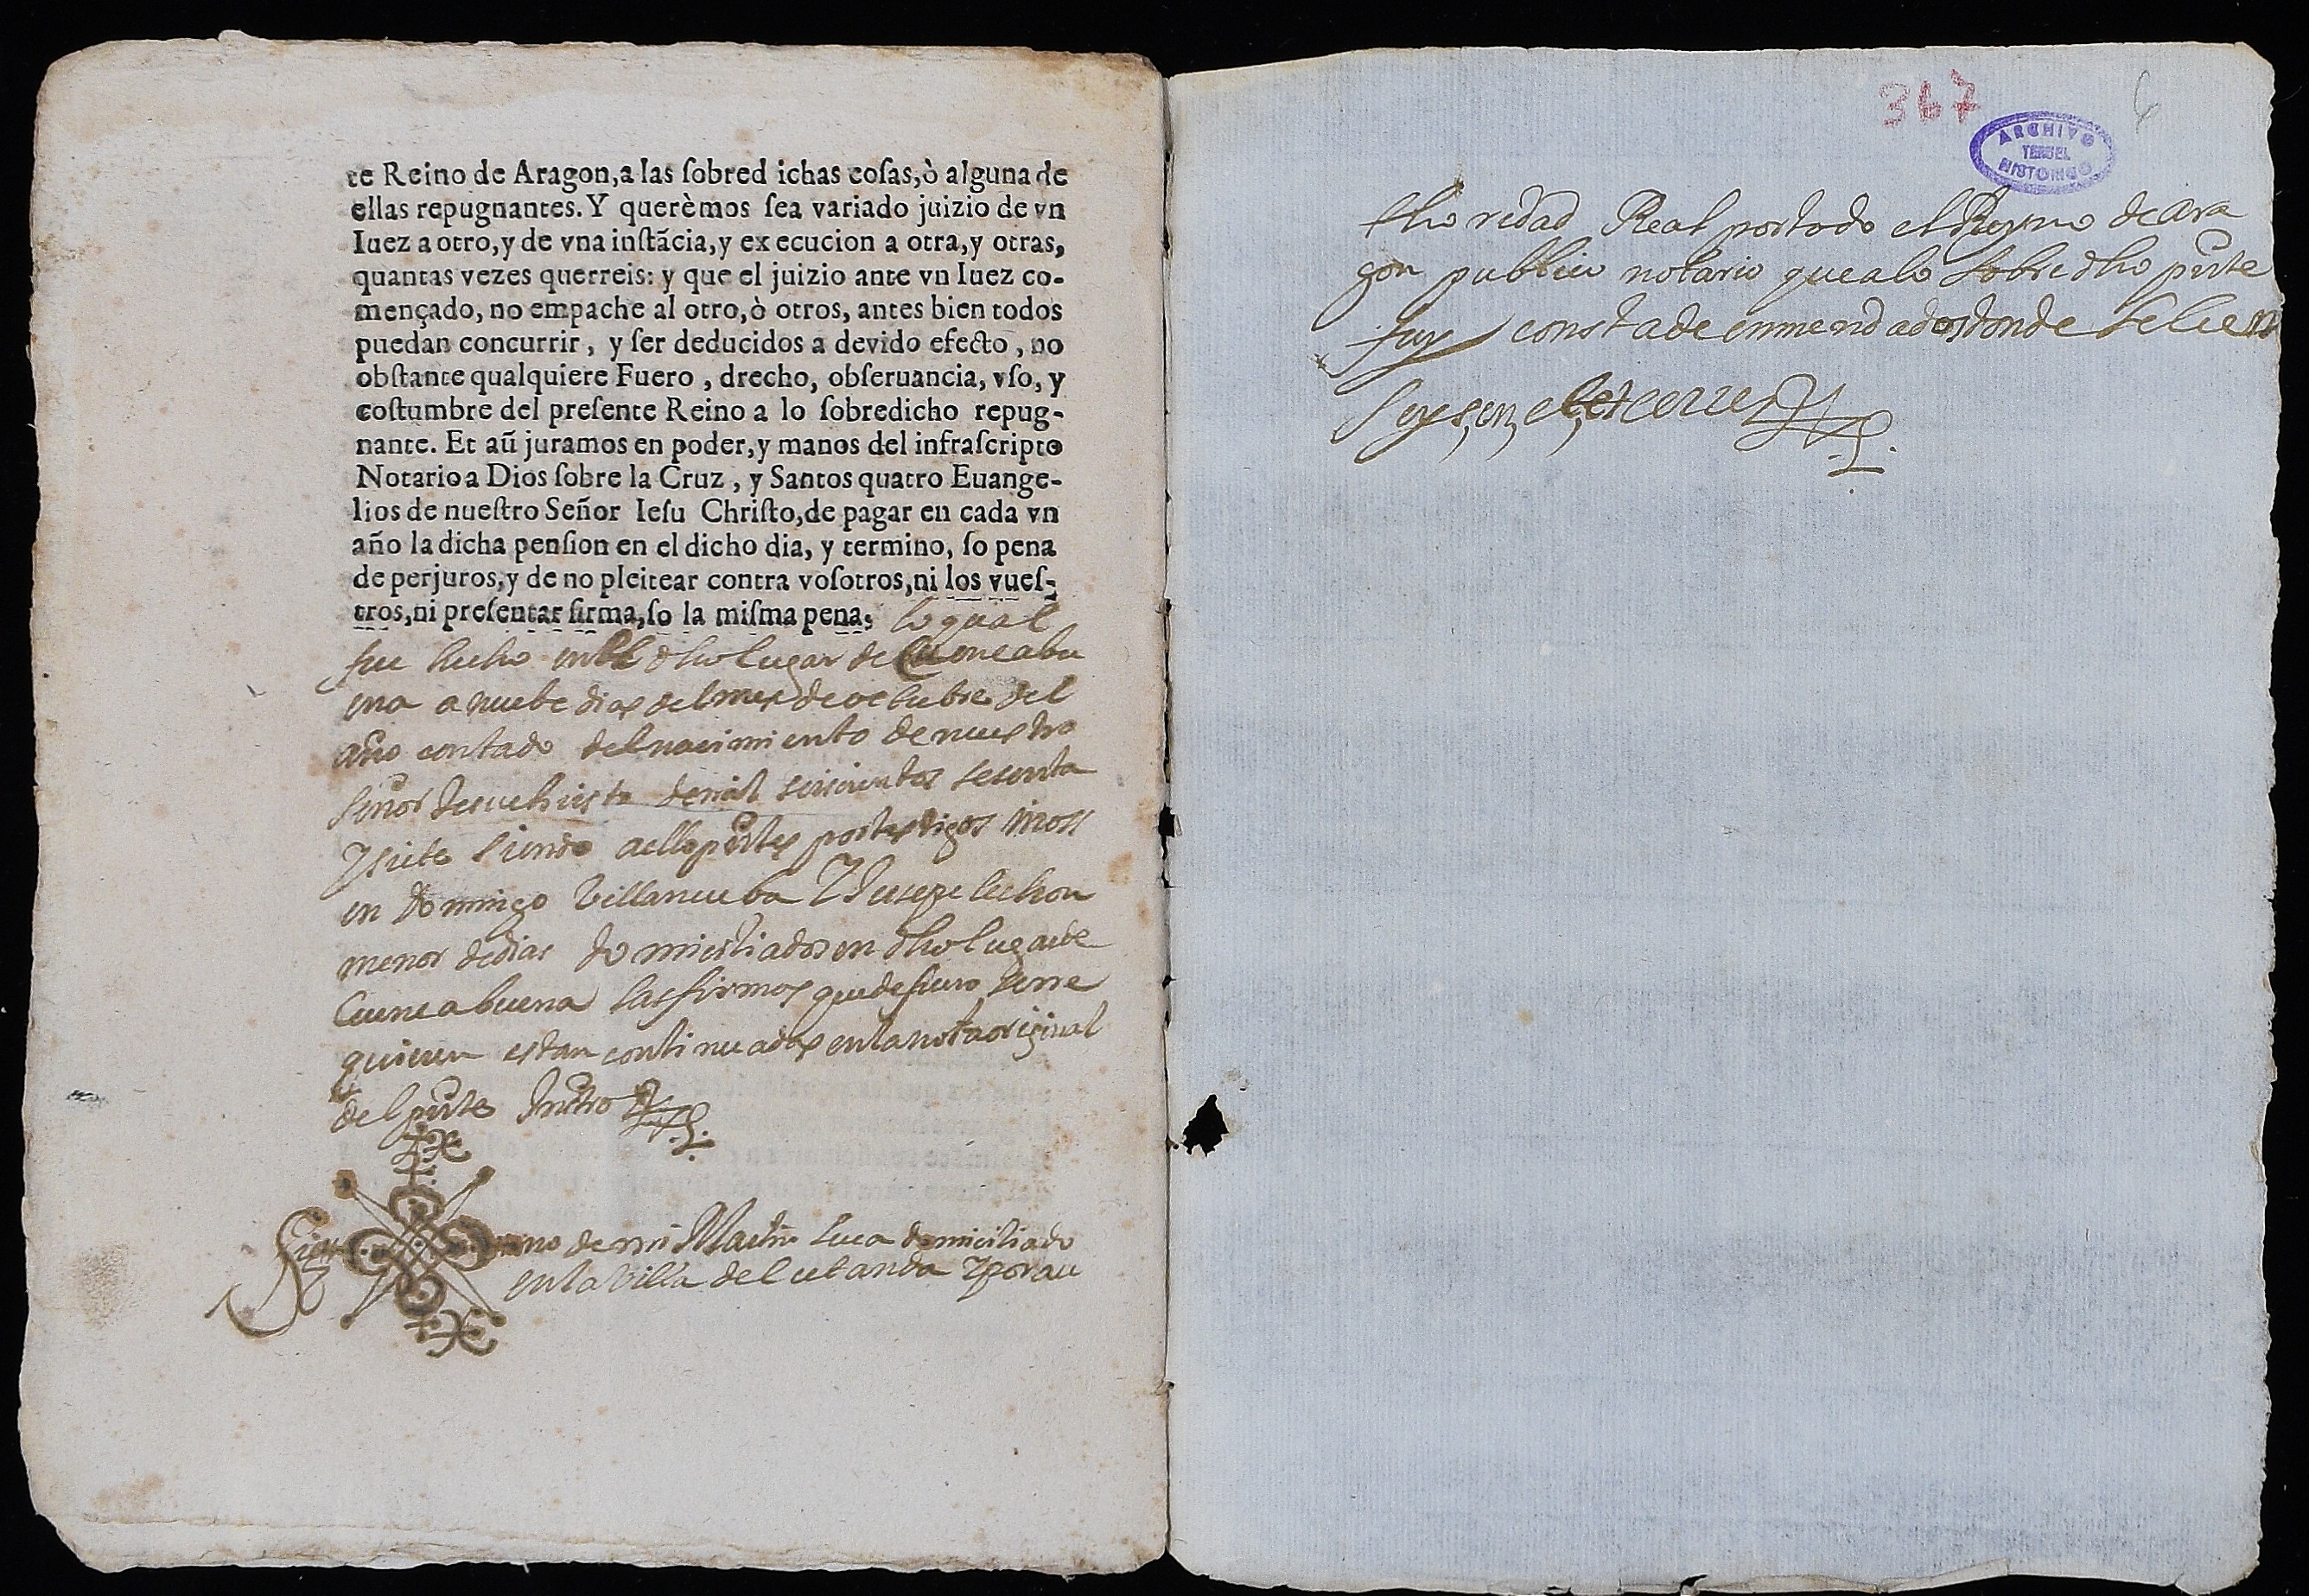 te Reino de Aragon, a las ſobred ichas coſas, ò alguna de
ellas repugnantes. Y querèmos ſea variado juizio de vn
Iuez a otro, y de vna inſtãcia, y ex ecucion a otra, y otras,
quantas vezes querreis: y que el juizio ante vn Iuez co-
mençado, no empache al otro, ò otros, antes bien todos
puedan concurrir, y ſer deducidos a devido efecto, no
obſtante qualquiere Fuero, drecho, obſeruancia, vſo, y
coſtumbre del preſente Reino a lo ſobredicho repug-
nante. Et aũ juramos en poder, y manos del infraſcripto
Notario a Dios ſobre la Cruz, y Santos quatro Euange-
lios de nueſtro Señor Ieſu Chriſto, de pagar en cada vn
año la dicha penſion en el dicho dia, y termino, ſo pena
de perjuros, y de no pleitear contra voſotros, ni los vueſ-
tros, ni preſentar firma, ſo la miſma pena, lo qual
fue hecho en el dho lugar de Cuencabu
ena a nuebe dias del mes de octubre del
año contado del nacimiento de nuestro
señor Jesuchristo de mil seiscientos sesenta
y siete siendo a ello pñtes por testigos moss
en Domingo Villanueba y Jusepe lechon
menor de dias domiciliados en dho lugar de
Cuencabuena las firmas que de fuero serre
quieren estan continuadas en la nota original
del pñte Instro
Sig no de mi Martin Luca domiciliado
en la Villa de Cutanda y por au
thoridad Real por todo el Reyno de Ara
gon publico notario que a lo sobredho pñte
fuy consta de enmendados donde se lee
et cerre
367
6
ARCHIVO
TERUEL
HISTORICO